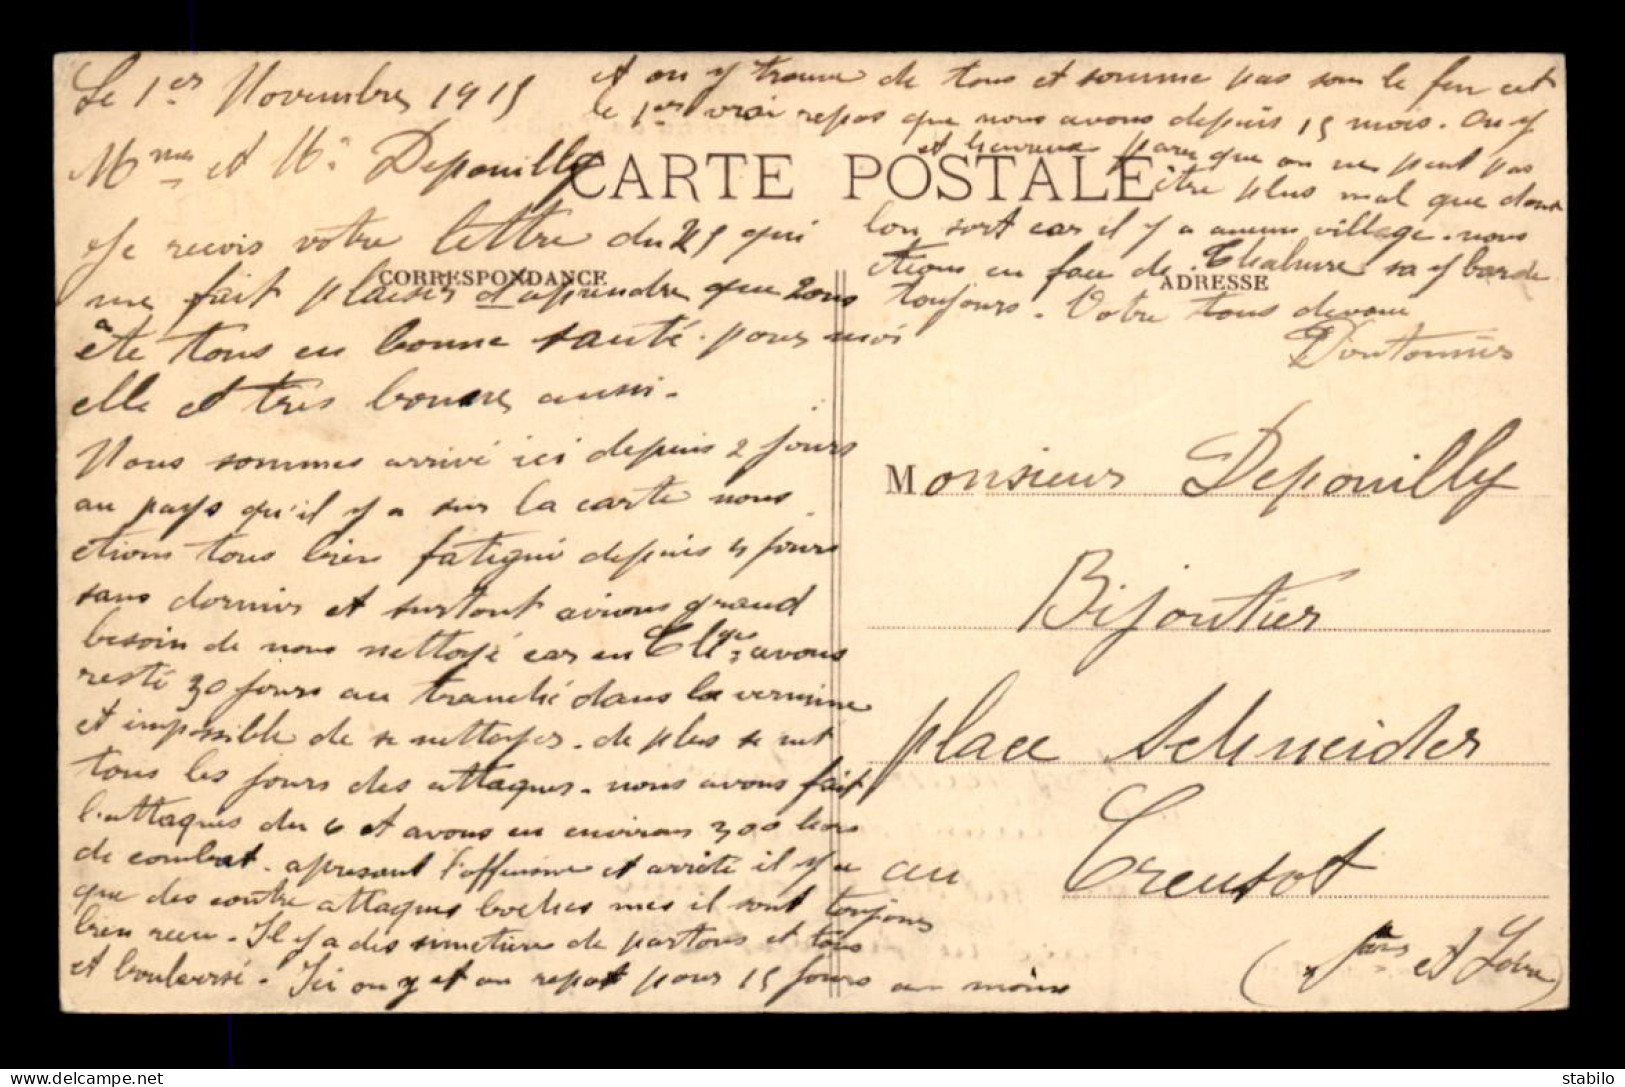 Le 1er Novembre 1915
Mme et Mr Depouilly
Je reçois votre lettre du 25 qui
me fait plaisir d'aprendre que vous
ête tous en bonne santé. pour moi
elle et très bonne aussi.
Nous sommes arrivé ici depuis 2 jours
au pays qu'il y a sur la carte nous
etions tous bien fatigué depuis 4 jours
sans dormir et surtout avions grand
besoin de nous nettoyé car en avons
resté 30 jours au tranché dans la vermine
et impossible de se nettoyer. de plus se met
tous les jours des attaques. nous avons fait
l'attaques du 6 et avons eu environ 300 hors
de combat. apresant l'offensive et arrêté il y a
que des contre attaques boches mes il sont toujours
bien recu. Il y a des simetiere de partous et tous
et boulversé. Ici on y et au repot pour 15 jours au moins
et on y trouve de tous et somme pas sous le feu cet
le 1er vrai repos que nous avons depuis 15 mois. On y
et heureux parce que on ne peut pas
être plus mal que dont
lon sort car il y a aucun village. nous
etions en face de Thahure sa y barde
toujours. Votre tous devoué
CARTE POSTALE
CORRESPONDANCE
ADRESSE
Monsieur Depouilly
Bijoutier
place Schneider
au Creusot
et Loire)
stabilo